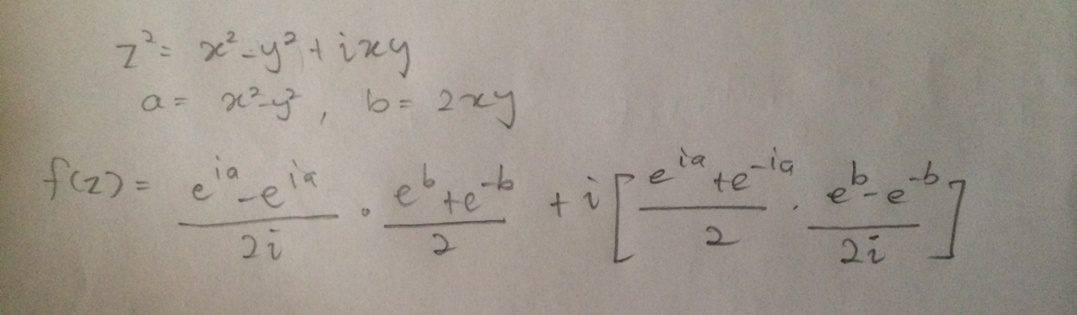 z² = x² - y² + ixy
a = x² - y², b = 2xy
f(z) = (e^{ia} - e^{ia})/(2i) · (e^{b} + e^{-b})/2 + i[(e^{ia} + e^{-ia})/2 · (e^{b} - e^{-b})/(2i)]